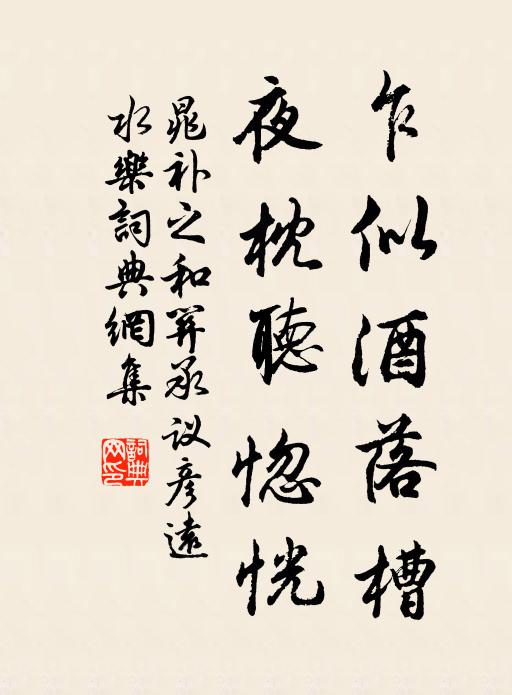 乍似酒落槽
夜枕聽惚恍
晁补之和關承议彦遠
水樂詞典網集
詞典网印